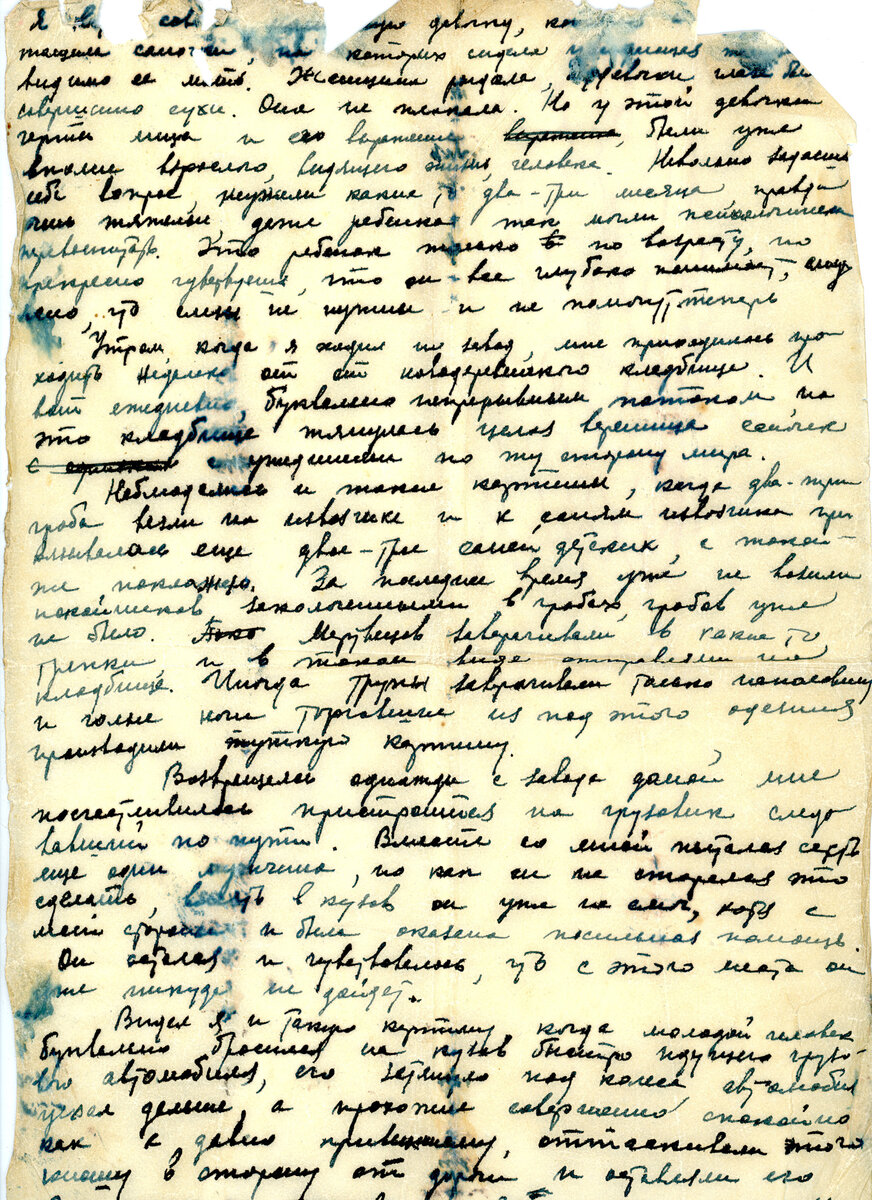 Я сов девочку, ко
тащила саночки, на которых сидела
видимо ее мать. Женщина рыдала, а у девочки глаза бы
совершенно сухи. Она не плакала. Но у этой девочки
черты лица и его выражение выражение, были уже
вполне взрослого, видящего жизнь, человека. Невольно задаешь
себе вопрос, неужели какие то два-три месяца правда
очень тяжелых даже ребенка так могли психологически
перевоспитать. Это ребенок только по возрасту, но
прекрасно чувствуешь, что он все глубоко понимает,
что слезы не нужны и не помогут теперь
Утром, когда я ходил на завод, мне приходилось про
ходить недалеко от от новодеревенского кладбища. И
вот ежедневно, буквально непрерывным потоком на
это кладбище тянулась целая вереница саночек
с с ушедшими по ту сторону мира.
Наблюдались и такие картины, когда два-три
гроба везли на извозчике и к саням извозчика при
вязывалось еще двое-трое саней детских, с такой-
же поклажею. За последнее время уже не возили
покойников заколоченными в гробах, гробов уже
не было. Мертвецов заворачивали в какие то
тряпки, и в таком виде отправляли на
кладбище. Иногда трупы заворачивали только наполовину
и голые ноги торчавшие из под этого одеяния
производили жуткую картину.
Возвращаясь однажды с завода домой мне
посчастливилось пристроится на грузовик следо
вавший по пути. Вместе со мной пытался сесть
еще один мужчина, но как он не старался это
сделать, влезть в кузов он уже не смог, хотя с
моей стороны и была оказана посильная помощь.
Он остался и чувствовалось, что с этого места он
уже никуда не дойдет.
Видел я и такую картину, когда молодой человек
буквально бросился на кузов быстро идущего грузо-
вого автомобиля, его затянуло под колеса, автомобиль
уехал дальше, а прохожие совершенно спокойно
как к давно привычному, оттаскивали этого
юношу в сторону от дороги и оставляли его